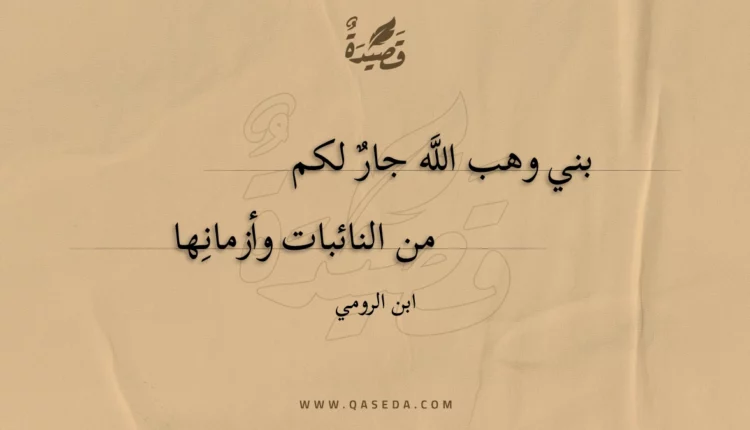 قَصِيْدَةٌ
بني وهب اللَّه جارٌ لكم
من النائبات وأزمانِها
ابن الرومي
WWW.QASEDA.COM